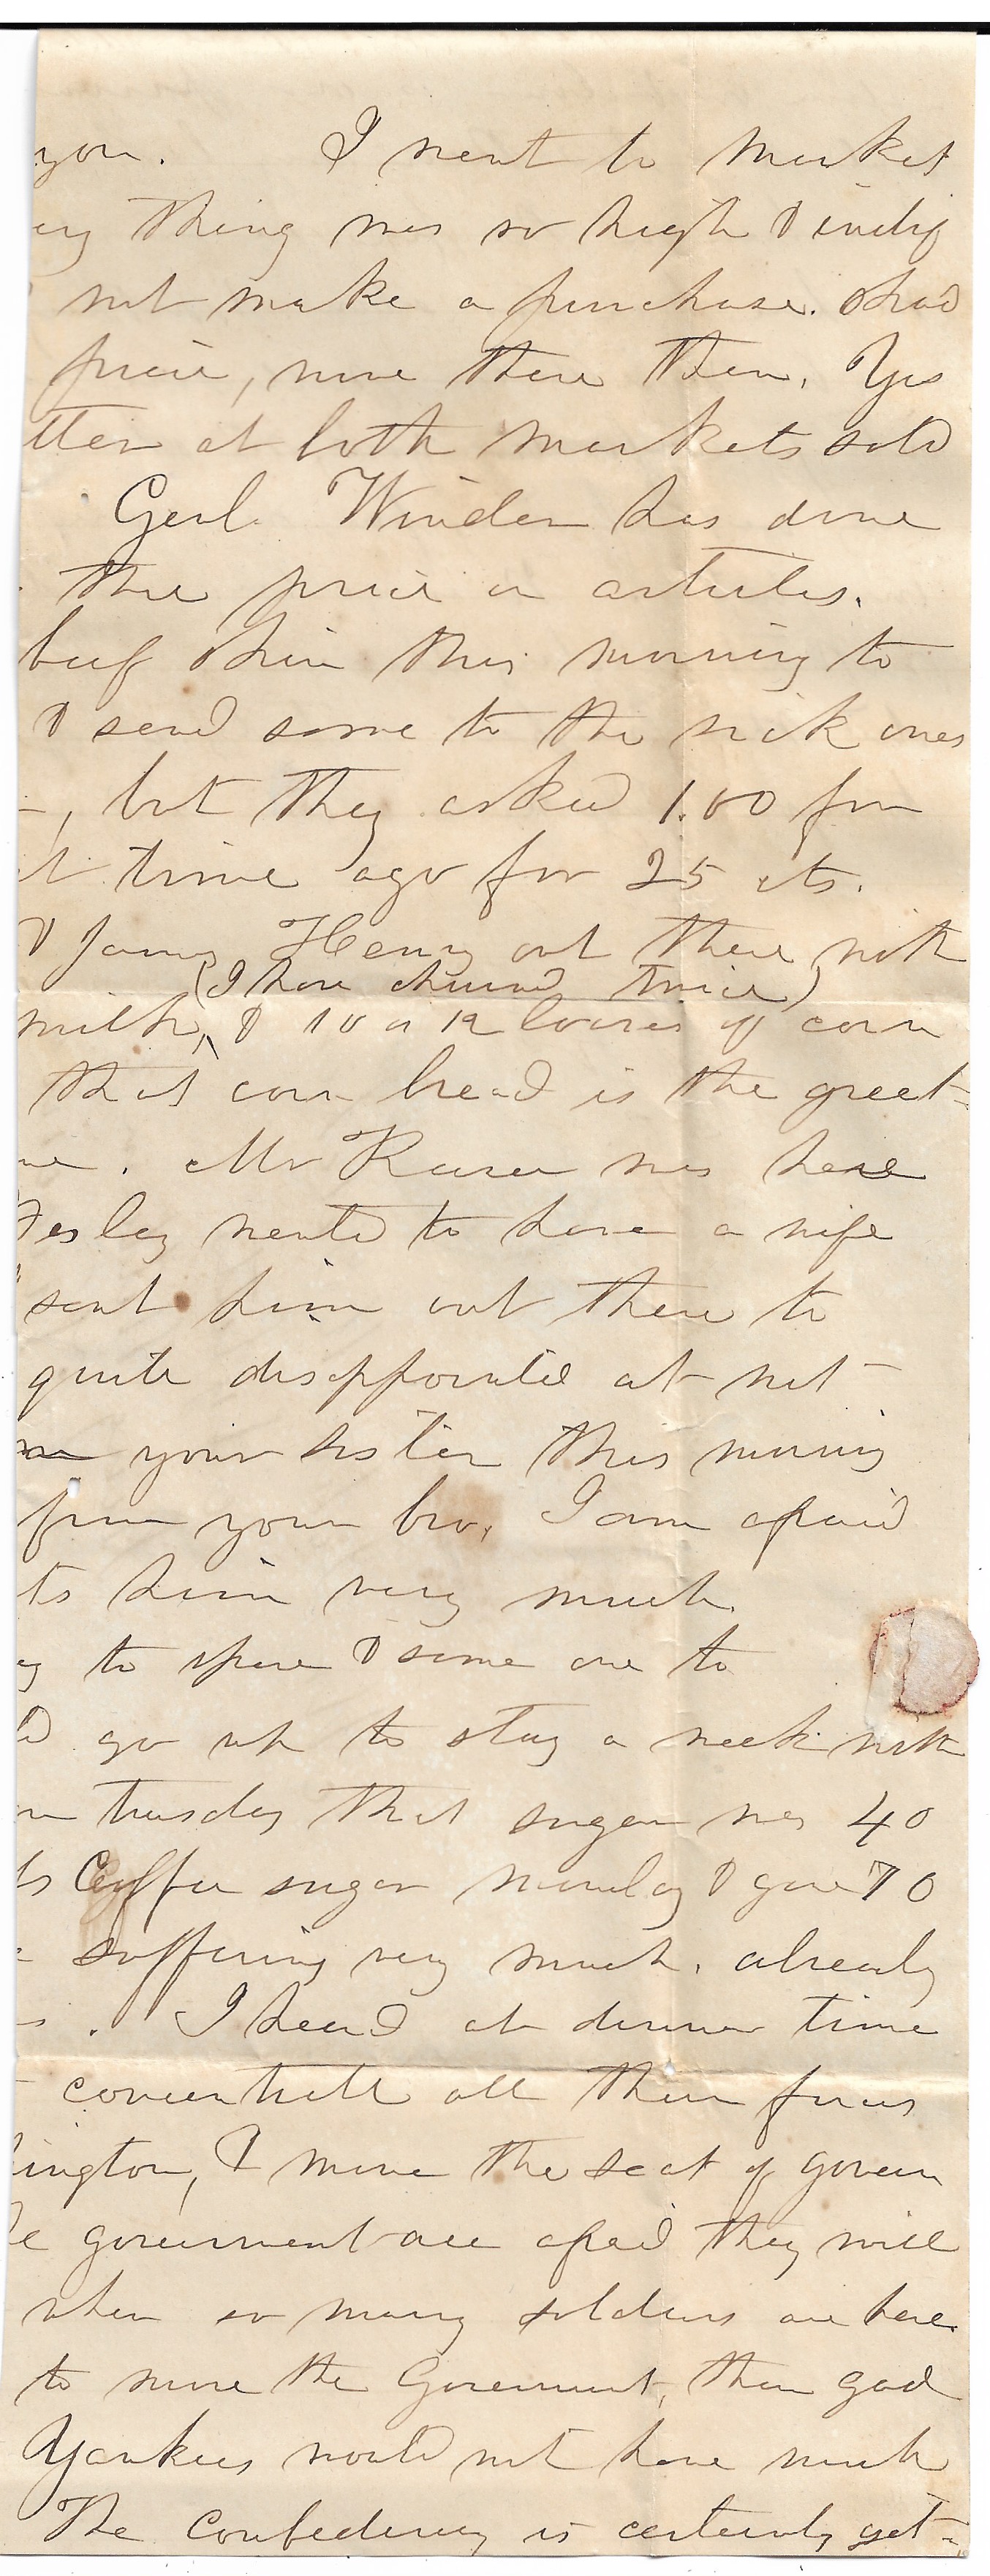 you. I went to market
ery thing was so high & indif
not make a purchase. Shad
price, were there then. Yes
tter at both markets sold
Genl. Winder has done
the price on articles.
beef shin this morning to
& send some to the sick ones
, but they asked 1.00 for
t time ago for 25 cts.
& James Henry out there with
(I have churned twice)
milk, & 10 or 12 loaves of corn
that corn bread is the great-
me. Mr was here
Wesley went to have a wife
sent him out there to
quite disappointed at not
your sister this morning
from your bro. I am afraid
ts him very much.
to spare & some one to
go up to stay a week with
on tuesday that sugar was 40
ts Coffee sugar monday & gave 70
suffering very much. already
. I heard at dinner time
concentrate all their forces
ington, & move the seat of govern
government are afraid they will
when so many soldiers are here
to move the Goverment, then god
Yankees would not have much
The Confederacy is certainly get-